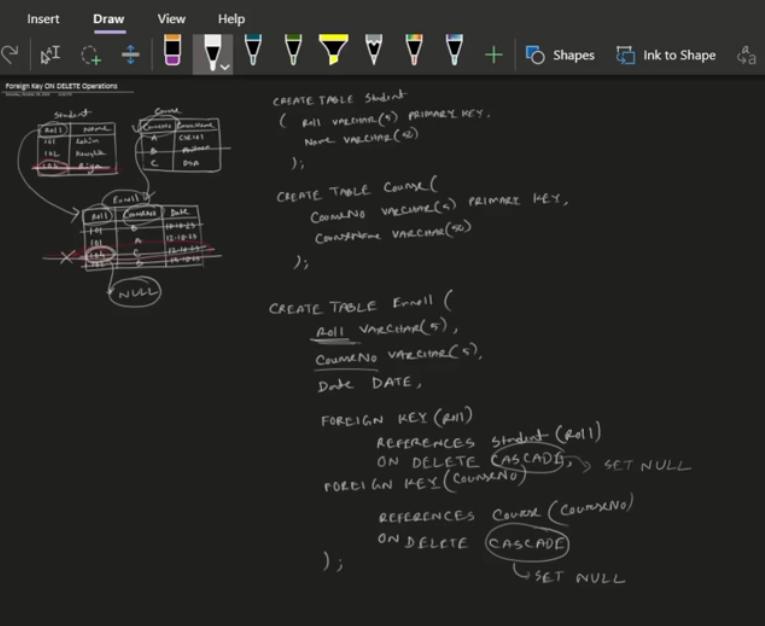 Insert Draw View Help
Shapes Ink to Shape
Foreign Key ON DELETE Operations
Student
Roll Name
101 Rahim
102
Riya
Course
CourseNo CourseName
A CSE101
B
C DSA
Enroll
Roll CourseNo Date
101 B 12-10-23
101 A 12-10-23
C 12-10-23
12-10-23
NULL
CREATE TABLE Student
( Roll VARCHAR(5) PRIMARY KEY,
Name VARCHAR(50)
);
CREATE TABLE Course(
CourseNo VARCHAR(5) PRIMARY KEY,
CourseName VARCHAR(50)
);
CREATE TABLE Enroll (
Roll VARCHAR(5),
CourseNo VARCHAR(5),
Date DATE,
FOREIGN KEY(Roll)
REFERENCES Student (Roll)
ON DELETE CASCADE, SET NULL
FOREIGN KEY(CourseNo)
REFERENCES Course (CourseNo)
ON DELETE CASCADE
SET NULL
);